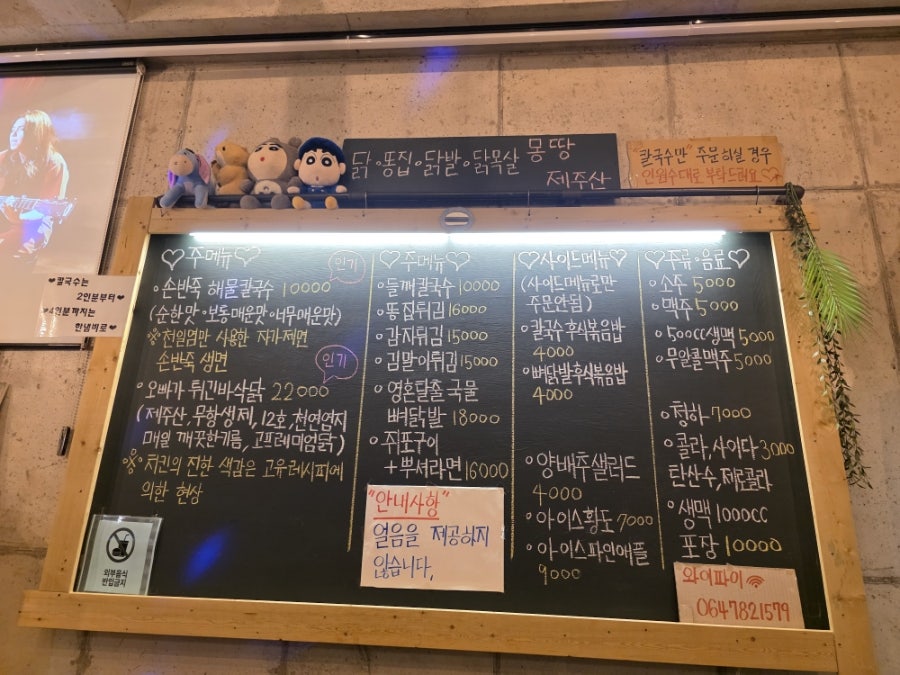 닭•똥집•닭발•닭목살 몽땅
제주산
"칼국수만" 주문하실 경우
인원수대로 부탁드려요♡
♥칼국수는
2인분부터♥
♥4인분까지는
한냄비로♥
♡주메뉴♡
인기
•손반죽 해물칼국수 10000
(순한맛•보통매운맛•너무매운맛)
※천일염만 사용한 자가제면
손반죽 생면
인기
•오빠가 튀긴바삭닭 22000
(제주산, 무항생제, 12호, 천연염지
매일 깨끗한기름, 고프레미엄닭)
※치킨의 진한 색감은 고유레시피에
의한 현상
외부음식
반입금지
♡주메뉴♡
•들깨칼국수 10000
•똥집튀김 16000
•감자튀김 15000
•김말이튀김 15000
•영혼탈출 국물
뼈닭발 18000
•쥐포구이
+뿌셔라면 16000
"안내사항"
얼음을 제공하지
않습니다.
♡사이드메뉴♡
(사이드메뉴로만
주문안됨)
•칼국수 후식볶음밥
4000
•뼈닭발후식볶음밥
4000
•양배추샐러드
4000
•아이스황도 7000
•아이스파인애플
9000
♡주류•음료♡
•소주 5000
•맥주 5000
•500cc생맥 5000
•무알콜맥주 5000
•청하 7000
•콜라, 사이다 3000
탄산수, 제로콜라
•생맥 1000cc
포장 10000
와이파이
0647821579